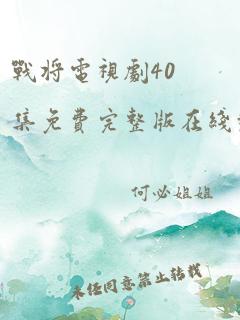 戰將電視劇40
集免費完整版在綫
何必姐姐
未经同意禁止转载